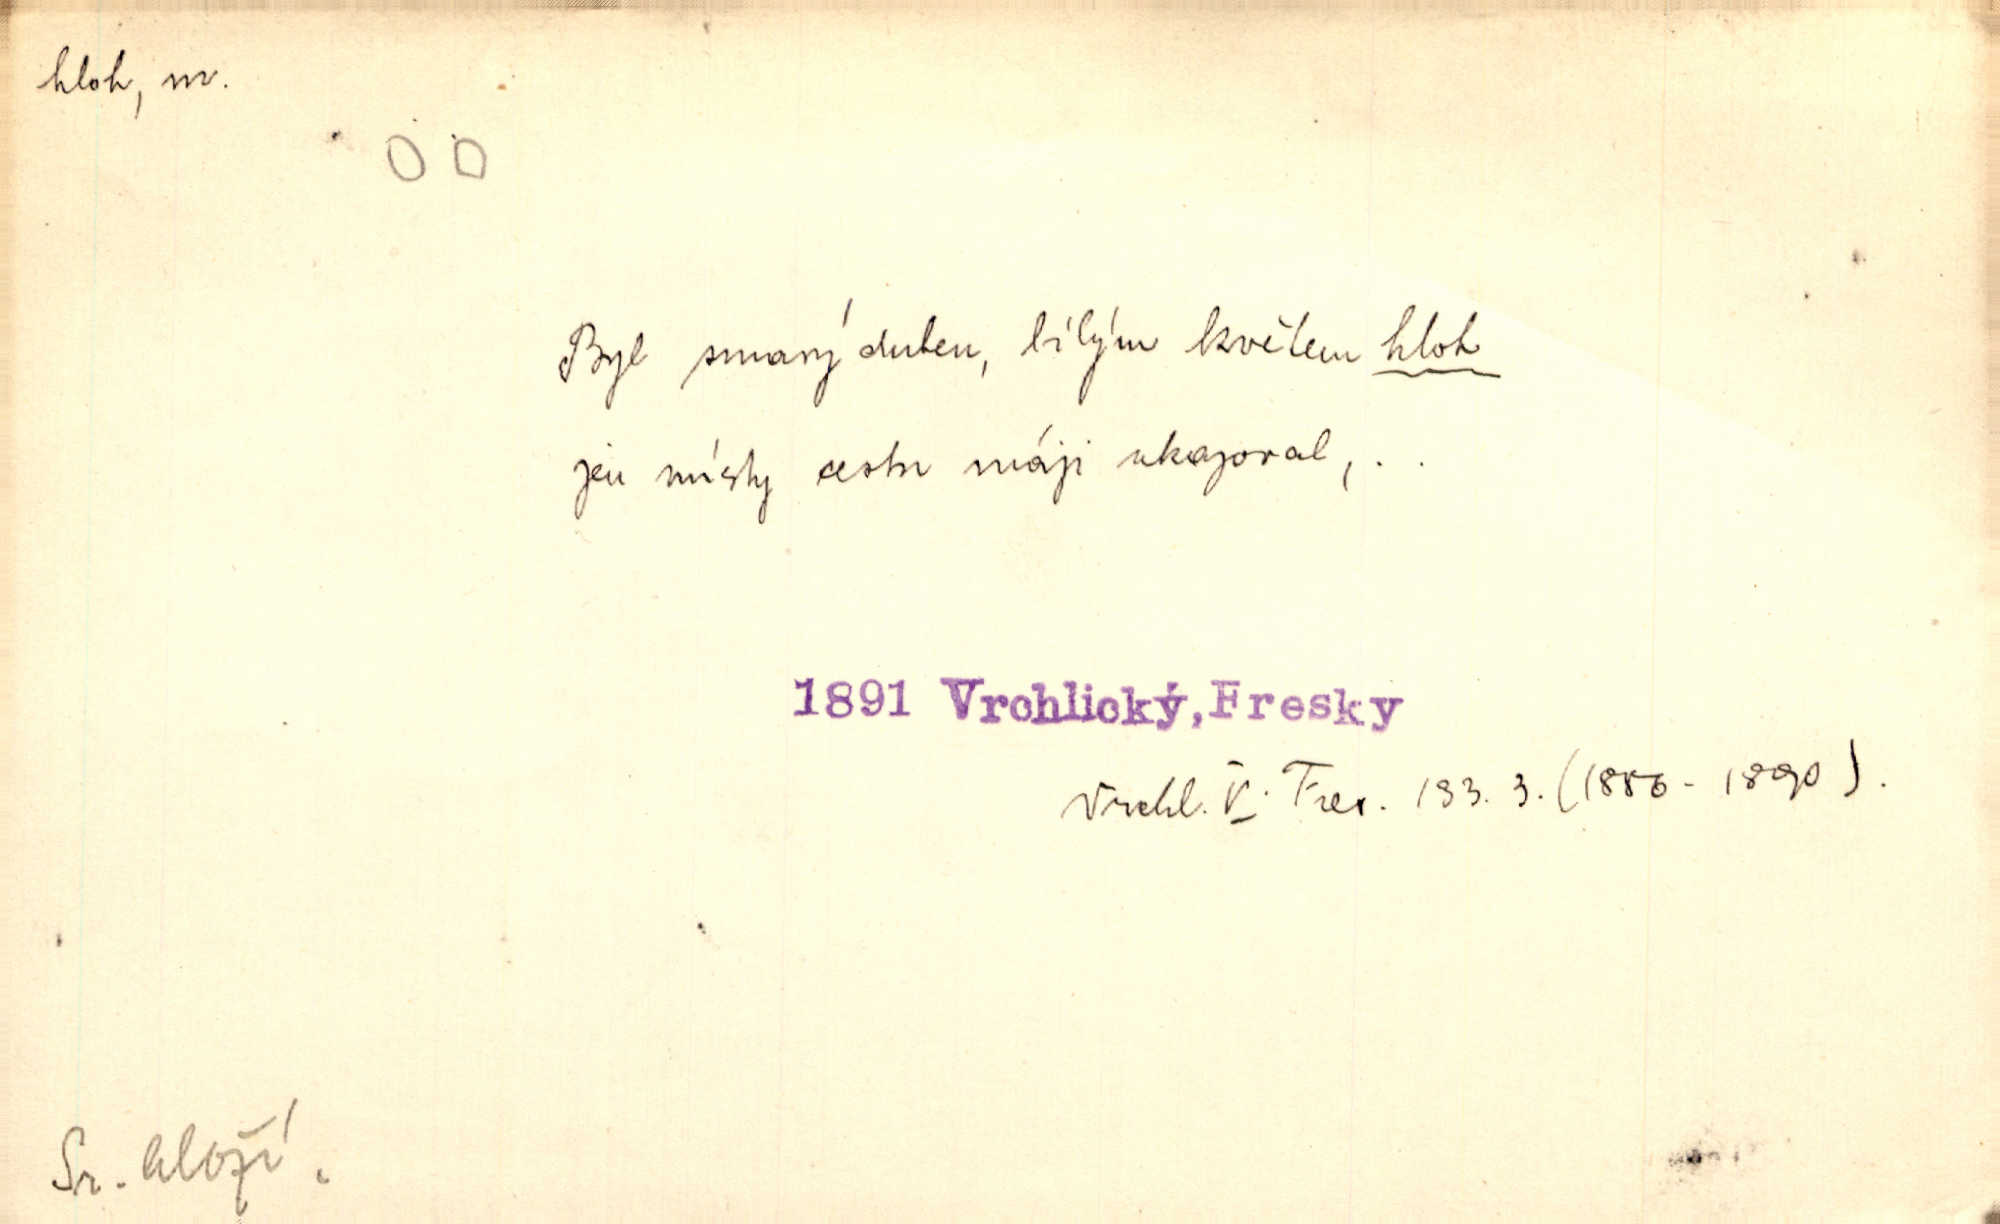 hloh, m.
Byl smavý duben, bílým květem hloh
jen místy cestu máji ukazoval, . .
1891 Vrchlický, Fresky
Vrchl. V. Fres. 133. 3. (1886 - 1890).
Sr. hloží.